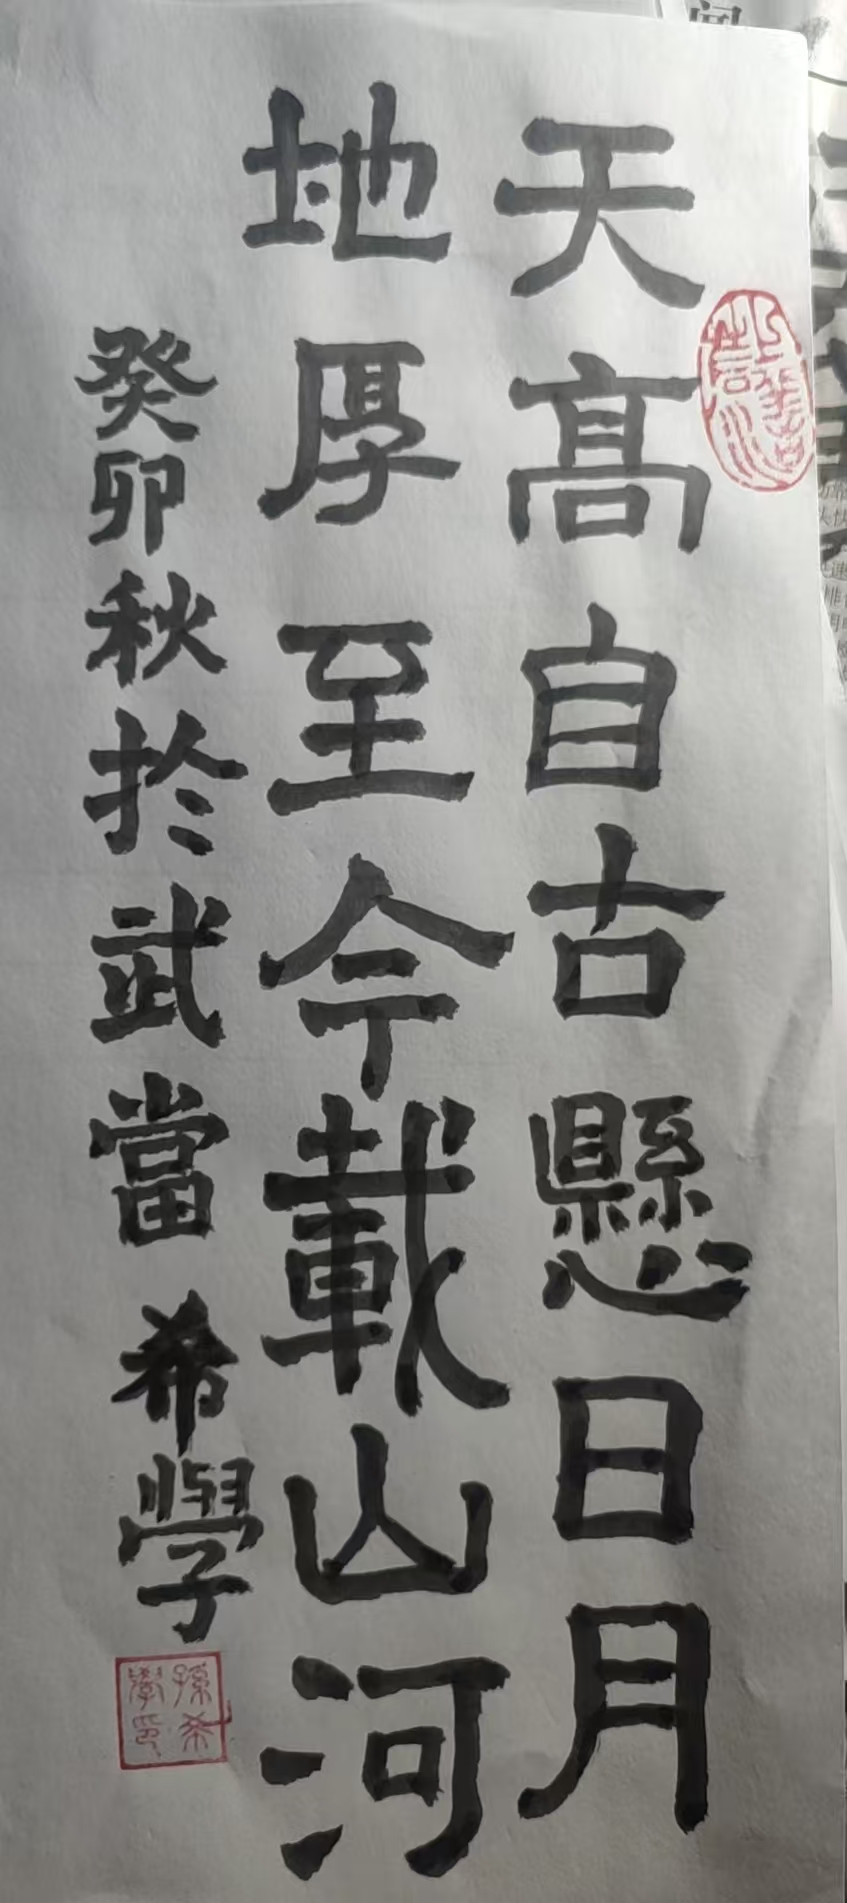 天高自古懸日月
地厚至今載山河
癸卯秋於武當 希學
孫希學印